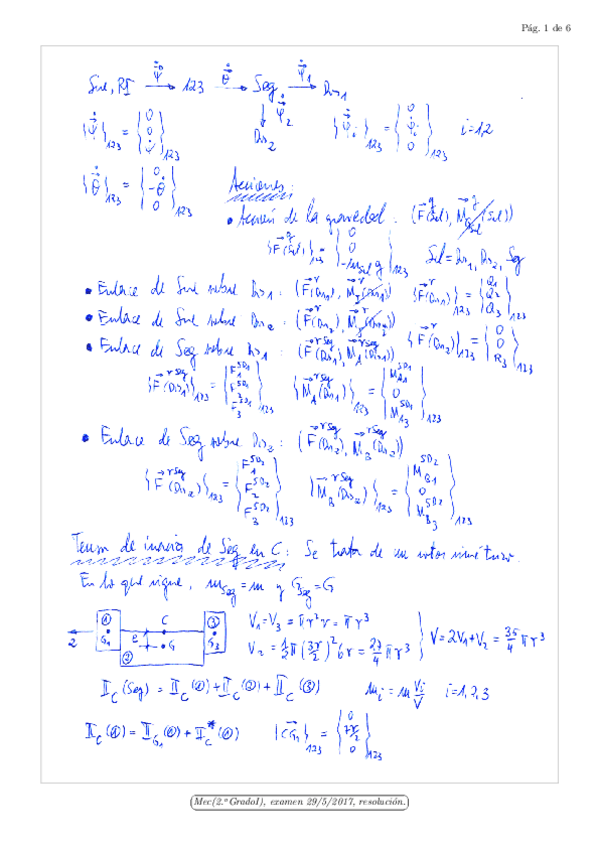 Pág. 1 de 6
Sue, RI →(ψ̇) 123 →(θ̇) Seg →(φ̇₁) Dis₁
↓ φ̇₂
Dis₂
{ψ̇}₁₂₃ = {0, 0, ψ̇}₁₂₃ {φ̇ᵢ}₁₂₃ = {0, φ̇ᵢ, 0}₁₂₃ i=1,2
{θ̇}₁₂₃ = {0, -θ̇, 0}₁₂₃
Acciones:
• Acción de la gravedad: (F^g(Sol), M^g_Gsol(Sol))
{F^g(Sol)}₁₂₃ = {0, 0, -m_sol g}₁₂₃ Sol = Dis₁, Dis₂, Seg
• Enlace de Sue sobre Dis₁: (F^r(Dis₁), M^r_I(Dis₁)) {F^r(Dis₁)}₁₂₃ = {Q₁, Q₂, Q₃}₁₂₃
• Enlace de Sue sobre Dis₂: (F^r(Dis₂), M^r_J(Dis₂)) {F^r(Dis₂)}₁₂₃ = {0, 0, R₃}₁₂₃
• Enlace de Seg sobre Dis₁: (F^rSeg(Dis₁), M_A^rSeg(Dis₁))
{F^rSeg(Dis₁)}₁₂₃ = {F₁^SD1, F₂^SD1, F₃^SD1}₁₂₃ {M_A^rSeg(Dis₁)}₁₂₃ = {M_A1^SD1, 0, M_A3^SD1}₁₂₃
• Enlace de Seg sobre Dis₂: (F^rSeg(Dis₂), M_B^rSeg(Dis₂))
{F^rSeg(Dis₂)}₁₂₃ = {F₁^SD2, F₂^SD2, F₃^SD2}₁₂₃ {M_B^rSeg(Dis₂)}₁₂₃ = {M_B1^SD2, 0, M_B3^SD2}₁₂₃
Tensor de inercia de Seg en C: Se trata de un rotor simétrico.
En lo que sigue, m_Seg = m y G_Seg = G
① C ③
2 G₁ e G G₃
②
V₁ = V₃ = πr²r = πr³
V₂ = ½π(3r/2)²6r = 27/4 πr³
V = 2V₁ + V₂ = 35/4 πr³
II_C(Seg) = II_C(①) + II_C(②) + II_C(③) mᵢ = m Vᵢ/V i=1,2,3
II_C(①) = II_G₁(①) + II_C*(①) {CG₁}₁₂₃ = {0, 7r/2, 0}₁₂₃
Mec(2.º GradoI), examen 29/5/2017, resolución.